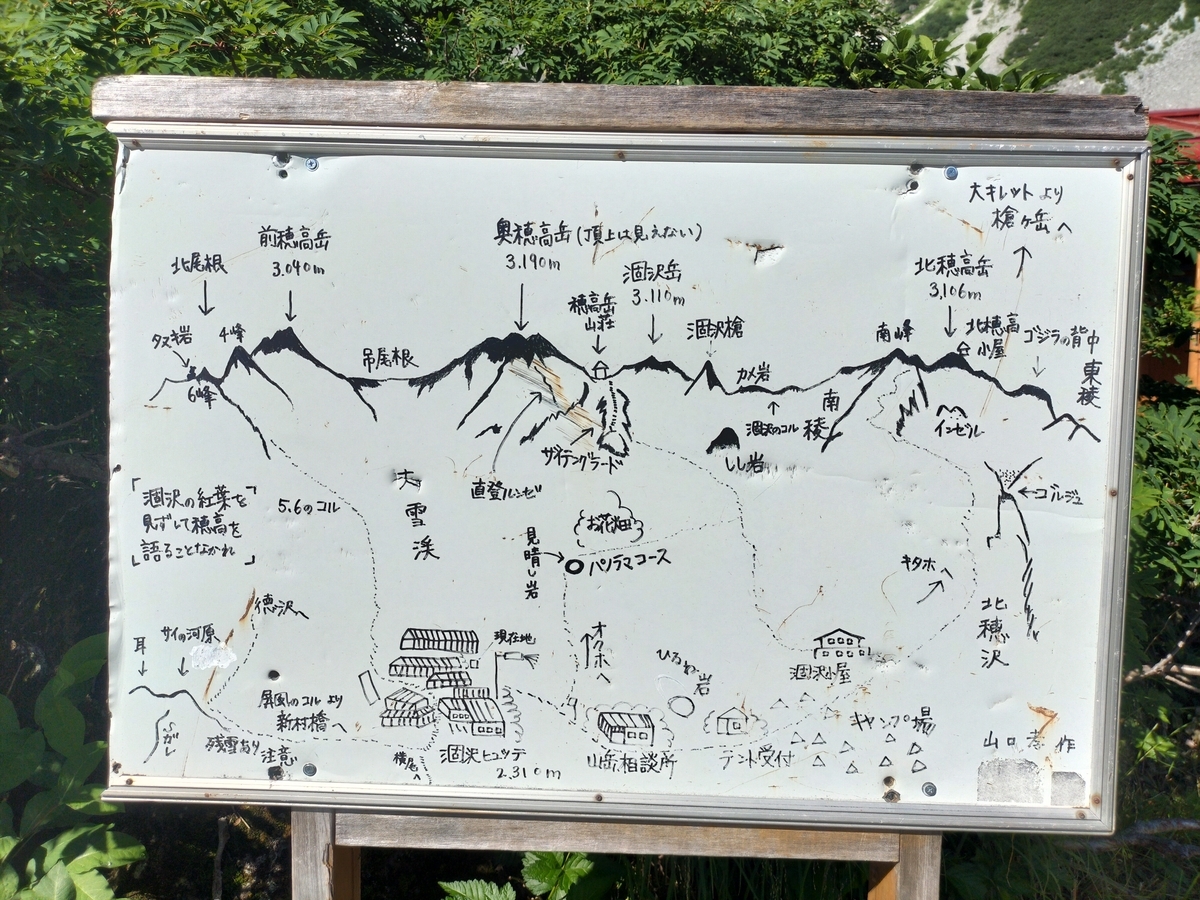 大キレットより
槍ヶ岳へ
前穂高岳
3.040m
奥穂高岳(頂上は見えない)
3.190m
北尾根
涸沢岳
3.110m
北穂高岳
3,106m
穂高岳
山荘
タヌキ岩
4峰
6峰
吊尾根
涸沢槍
カメ岩
涸沢のコル
南峰
北穂高
小屋
ゴジラの背中
東稜
南稜
インゼル
ザイテングラード
しし岩
直登ルンゼ
ゴルジュ
「涸沢の紅葉を
見ずして穂高を
語ることなかれ」
5.6のコル
大雪渓
お花畑
見晴し岩
パノラマコース
キタホへ
北穂沢
徳沢へ
耳
サイの河原
現在地
オクホへ
ひるね岩
涸沢小屋
屏風のコルより
新村橋へ
残雪あり
注意
横尾へ
涸沢ヒュッテ
2.310m
山岳相談所
テント受付
キャンプ場
山口孝作